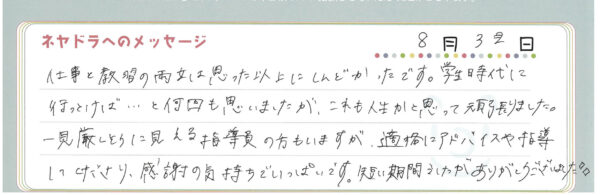 ネヤドラへのメッセージ
8月 31日
仕事と教習の両立は思った以上にしんどかったです。学生時代に
行っとけば…と何回も思いましたが、これも人生かと思って頑張りました。
一見厳しそうに見える指導員の方もいますが、適格にアドバイスや指導
してくださり、感謝の気持ちでいっぱいです。短い期間でしたがありがとうございました。